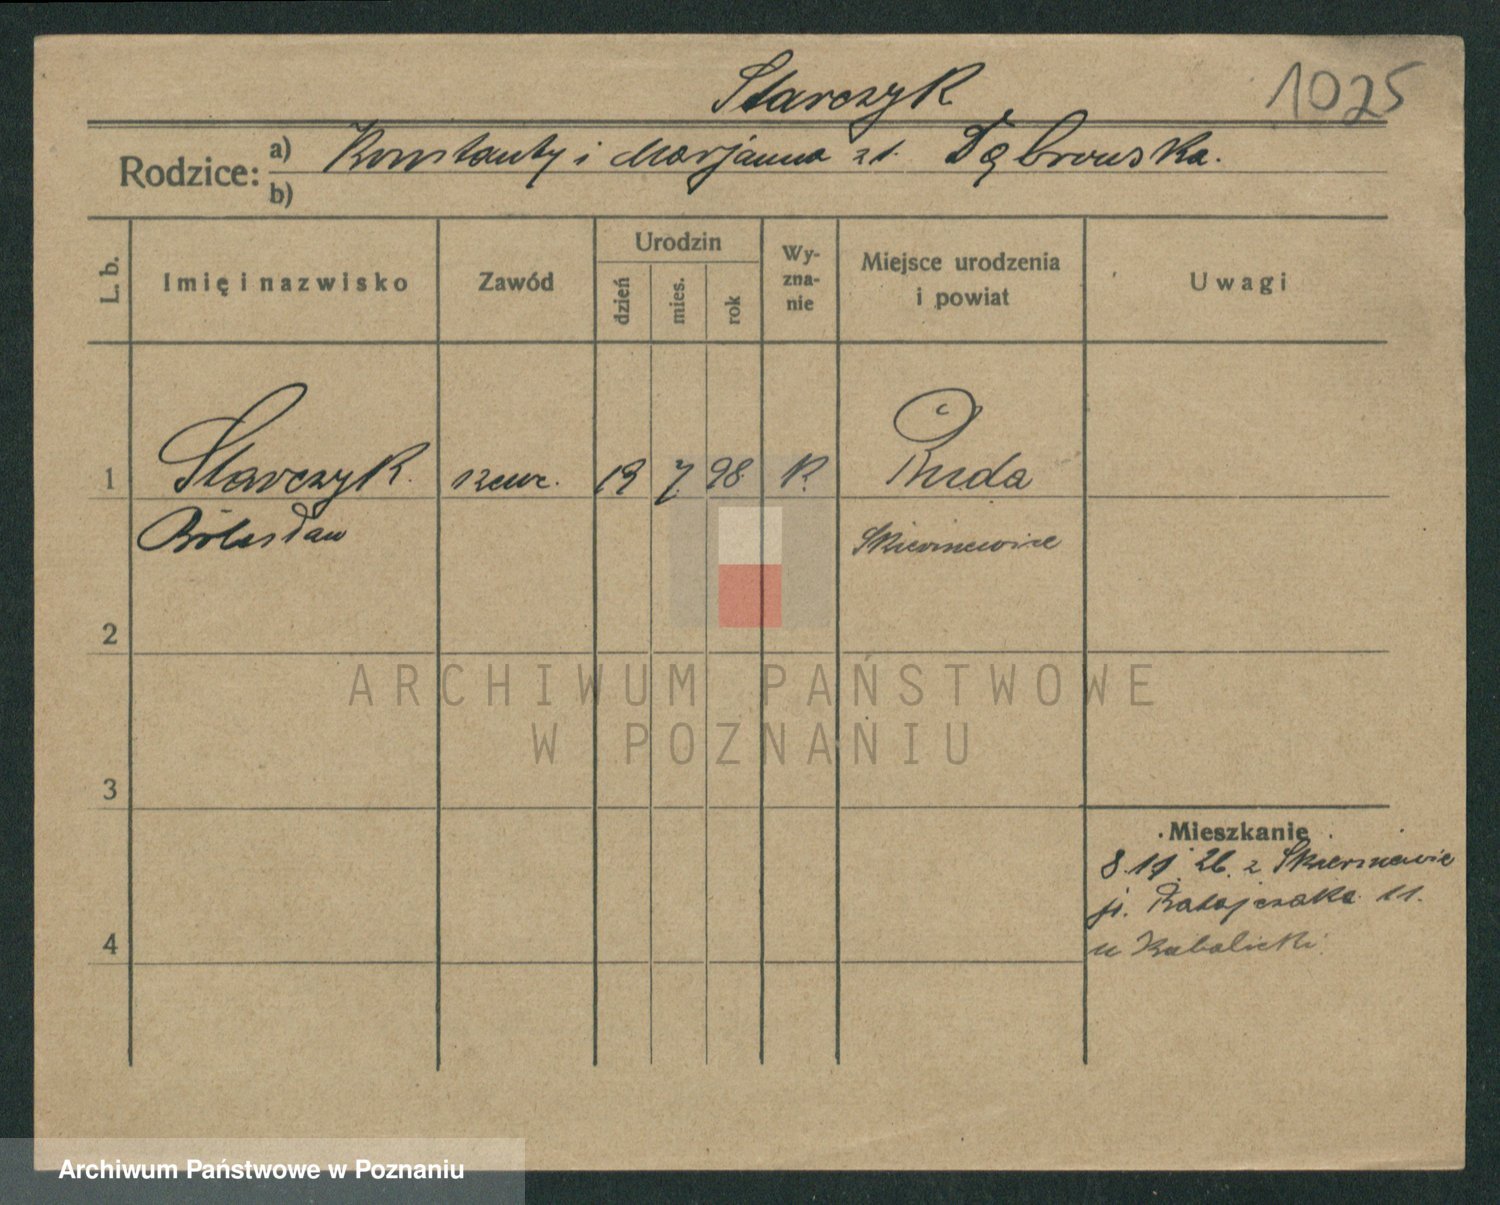 Starczyk
1025
Rodzice: a) Konstanty i Marjanna z d. Dąbrowska.
b)
L. b.
Imię i nazwisko
Zawód
Urodzin
dzień
mies.
rok
Wy-
zna-
nie
Miejsce urodzenia
i powiat
Uwagi
1 Starczyk szewc. 19 7 98 R. Ruda
Bolesław Skierniewice
2
ARCHIWUM PAŃSTWOWE
W POZNANIU
3
Mieszkanie
8.11.26. z Skierniewic
Ratajczaka 11.
u Kubalicki
4
Archiwum Państwowe w Poznaniu